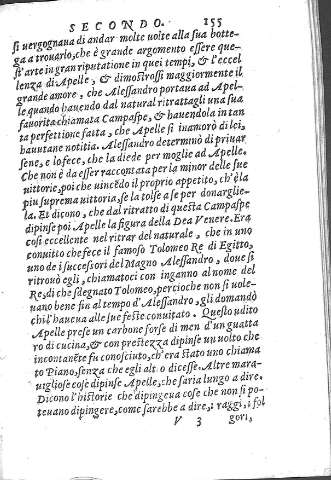 SECONDO. 155
si uergognaua di andar molte uolte alla sua botte-
ga a trouarlo, che è grande argomento essere que-
st'arte in gran riputatione in quei tempi, & l'eccel
lenza di Apelle, & dimostrossi maggiormente il
grande amore, che Alessandro portaua ad Apel-
le quando hauendo dal natural ritrattagli una sua
fauorita chiamata Campaspe, & hauendola in tan
ta perfettione fatta, che Apelle si inamorò di lei,
hauutane notitia. Alessandro determinò di priuar
sene, e lo fece, che la diede per moglie ad Apelle.
Che non è da esser raccontata per la minor delle sue
uittorie, poi che uincẽdo il proprio appetito, ch'è la
piu suprema uittoria, se la tolse a se per donarglie-
la. Et dicono, che dal ritratto di questa Campaspe
dipinse poi Apelle la figura della Dea Venere. Era
cosi eccellente nel ritrar del naturale, che in uno
conuitto che fece il famoso Tolomeo Re di Egitto,
uno de i successori del Magno Alessandro, doue si
ritrouò egli, chiamatoci con inganno al nome del
Re, di che sdegnato Tolomeo, percioche non si uole-
uano bene fin al tempo d'Alessandro, gli domandò
chi l'haueua alle sue feste conuitato. Quello udito
Apelle prese un carbone forse di men d'un guatta
ro di cucina, & con prestezza dipinse un uolto che
incontanẽte fu conosciuto, ch'era stato uno chiama
to Piano, senza che egli alt o dicesse. Altre mara-
uigliose cose dipinse Apelle, che saria lungo a dire.
Dicono l'historie che dipingeua cose che non si po-
teuano dipingere, come sarebbe a dire, i raggi, i fol
V 3 gori,